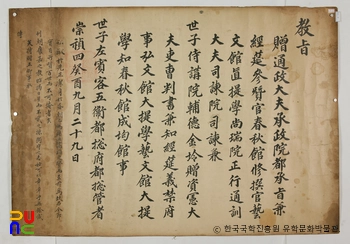 教旨
贈通政大夫承政院都承旨兼
經筵參贊官春秋館修撰官藝
文館直提學尚瑞院正行通訓
大夫司諫院司諫兼
世子侍講院輔德金坽贈資憲大
夫吏曹判書兼知經筵義禁府
事弘文館大提學藝文館大提
學知春秋館成均館事
世子左賓客五衛都摠府都摠管者
崇禎四癸酉九月二十九日
한국국학진흥원 유학문화박물관